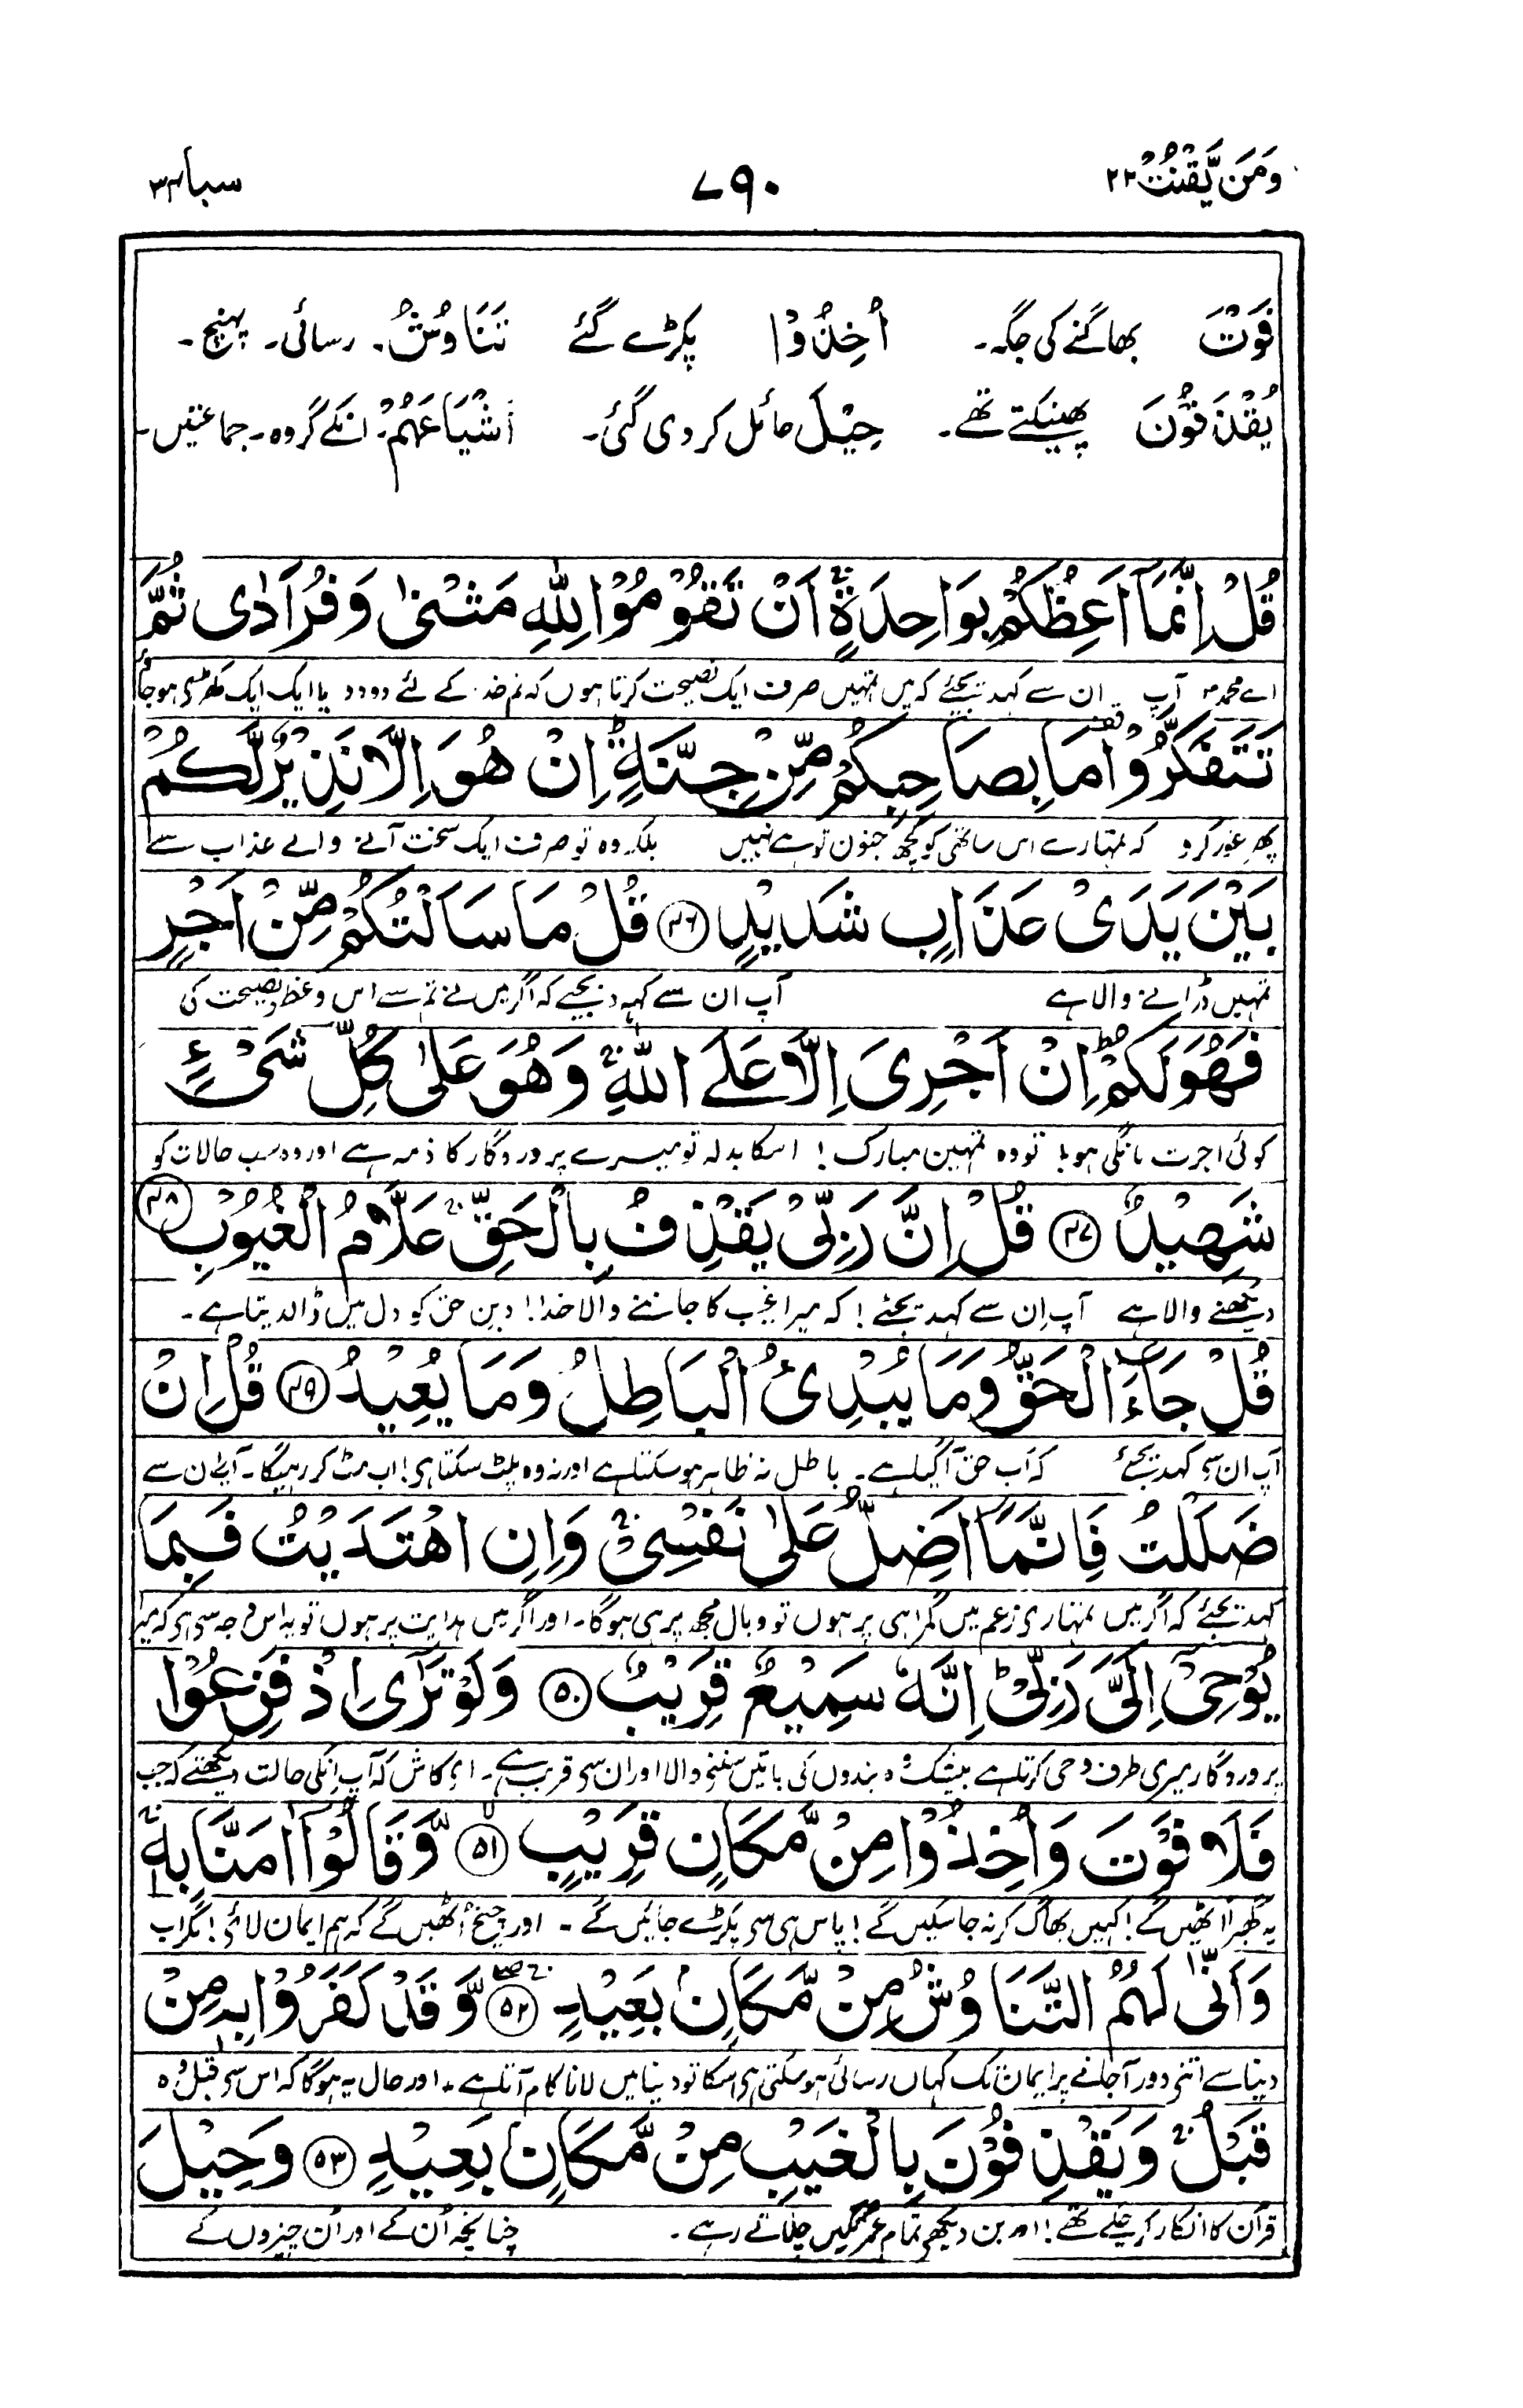 وَمَنْ يَّقْنُتْ ۲۲ ۷۹۰ سبا ۳۴
فَوْتَ بھاگنے کی جگہ۔ اُخِذُوْا پکڑے گئے تَنَاوُشُ۔ رسائی۔ پہنچ۔
يُقْذَفُوْنَ پھینکتے تھے۔ حِيْلَ حائل کر دی گئی۔ اَشْيَاعَهُمْ۔ انکے گروہ۔ جماعتیں۔
قُلْ اِنَّمَآ اَعِظُكُمْ بِوَاحِدَةٍ ۚ اَنْ تَقُوْمُوْا لِلّٰهِ مَثْنٰى وَفُرَادٰى ثُمَّ
اے محمدؐ آپ ان سے کہدیجئے کہ میں تمہیں صرف ایک نصیحت کرتا ہوں کہ تم خدا کے لئے دو دو یا ایک ایک کھڑے ہو جاؤ
تَتَفَكَّرُوْا مَا بِصَاحِبِكُمْ مِّنْ جِنَّةٍ ؕ اِنْ هُوَ اِلَّا نَذِيْرٌ لَّكُمْ
پھر غور کرو کہ تمہارے اس ساتھی کو کچھ جنون تو ہے نہیں بلکہ وہ تو صرف ایک سخت آنے والے عذاب سے
بَيْنَ يَدَىْ عَذَابٍ شَدِيْدٍ ۴۶ قُلْ مَا سَاَلْتُكُمْ مِّنْ اَجْرٍ
تمہیں ڈرانے والا ہے آپ ان سے کہہ دیجیے کہ اگر میں نے تم سے اس وعظ و نصیحت کی
فَهُوَ لَكُمْ ؕ اِنْ اَجْرِىَ اِلَّا عَلَى اللّٰهِ ۚ وَهُوَ عَلٰى كُلِّ شَىْءٍ
کوئی اجرت مانگی ہو! تو وہ تمہیں مبارک! اسکا بدلہ تو میرے پروردگار کا ذمہ ہے اور وہ سب حالات کو
شَهِيْدٌ ۴۷ قُلْ اِنَّ رَبِّىْ يَقْذِفُ بِالْحَقِّ ۚ عَلَّامُ الْغُيُوْبِ ۴۸
دیکھنے والا ہے آپ اِن سے کہدیجئے! کہ میرا غیب کا جاننے والا خدا! دین حق کو دل میں ڈالدیتا ہے۔
قُلْ جَآءَ الْحَقُّ وَمَا يُبْدِئُ الْبَاطِلُ وَمَا يُعِيْدُ ۴۹ قُلْ اِنْ
آپ ان سے کہدیجئے کہ اب حق آگیا ہے۔ باطل نہ ظاہر ہو سکتا ہے اور نہ وہ پلٹ سکتا ہی! اب مٹ کر رہیگا۔ آپ ان سے
ضَلَلْتُ فَاِنَّمَآ اَضِلُّ عَلٰى نَفْسِىْ ۚ وَاِنِ اهْتَدَيْتُ فَبِمَا
کہدیجئے کہ اگر میں تمہاری زعم میں گمراہی پر ہوں تو وبال مجھ پر ہی ہوگا۔ اور اگر میں ہدایت پر ہوں تو یہ اس وجہ سے ہی کہ میرا
يُوْحِىْٓ اِلَىَّ رَبِّىْ ؕ اِنَّهٗ سَمِيْعٌ قَرِيْبٌ ۵۰ وَلَوْ تَرٰٓى اِذْ فَزِعُوْا
پروردگار میری طرف وحی کرتا ہے بیشک وہ بندوں کی باتیں سننے والا اور ان سی قریب ہے۔ ای کاش کہ آپ انکی حالت دیکھتے کہ جب
فَلَا فَوْتَ وَاُخِذُوْا مِنْ مَّكَانٍ قَرِيْبٍ ۵۱ وَّقَالُوْٓا اٰمَنَّا بِهٖ ۚ
یہ گھبرا اٹھیں گے! کہیں بھاگ کر نہ جا سکیں گے! پاس ہی سی پکڑے جائیں گے۔ اور چیخ اٹھیں گے کہ ہم ایمان لائے! مگر اب
وَاَنّٰى لَهُمُ التَّنَاوُشُ مِنْ مَّكَانٍ بَعِيْدٍ ۵۲ وَّقَدْ كَفَرُوْا بِهٖ مِنْ
دنیا سے اتنی دور آجانے پر ایمان تک کہاں رسائی ہو سکتی ہی اسکا تو دنیا میں لانا کام آتا ہے۔ اور حال یہ ہوگا کہ اس سی قبل وہ
قَبْلُ ۚ وَيَقْذِفُوْنَ بِالْغَيْبِ مِنْ مَّكَانٍ بَعِيْدٍ ۵۳ وَحِيْلَ
قرآن کا انکار کر چکے تھے! اور بن دیکھی تمام عمر چلاتے رہے۔ چنانچہ اُن کے اور اُن چیزوں کے